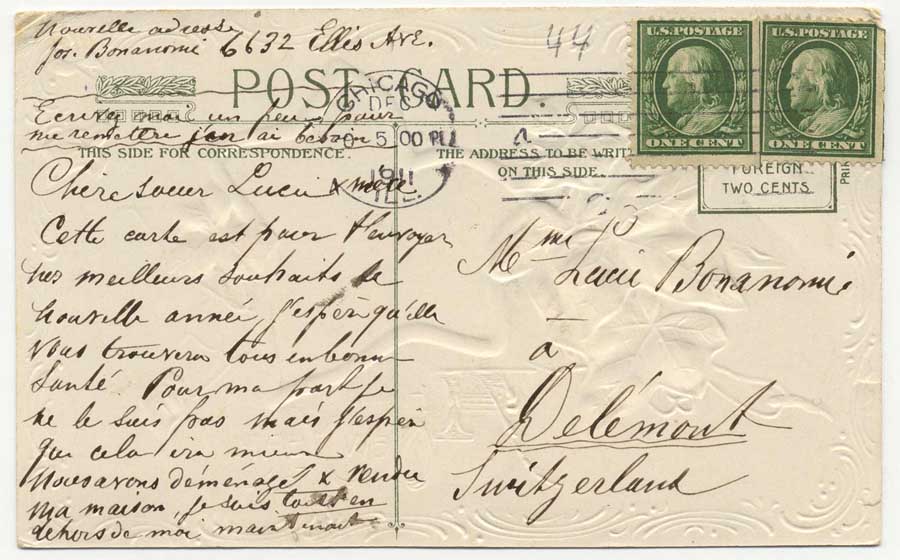 Nouvelle adresse
Jos. Bonanomi 6632 Ellis Ave.
44
U.S. POSTAGE
U.S. POSTAGE
ONE CENT
ONE CENT
POST CARD.
CHICAGO
DEC
5 00 PM
1911
ILL.
Ecrivez moi un peu pour
me remettre j'en ai besoin
THIS SIDE FOR CORRESPONDENCE.
THE ADDRESS TO BE WRIT
ON THIS SIDE
FOREIGN
TWO CENTS
Chère soeur Lucie &
Cette carte est pour t'envoyer
mes meilleurs souhaits de
Nouvelle année, j'espère qu'elle
vous trouvera tous en bonne
Santé. Pour ma part je
ne le suis pas mais j'espère
que cela ira mieux
Nous avons déménagé & vendu
ma maison, je suis tout en
dehors de moi maintenant
Mme Lucie Bonanomi
à
Delémont
Switzerland